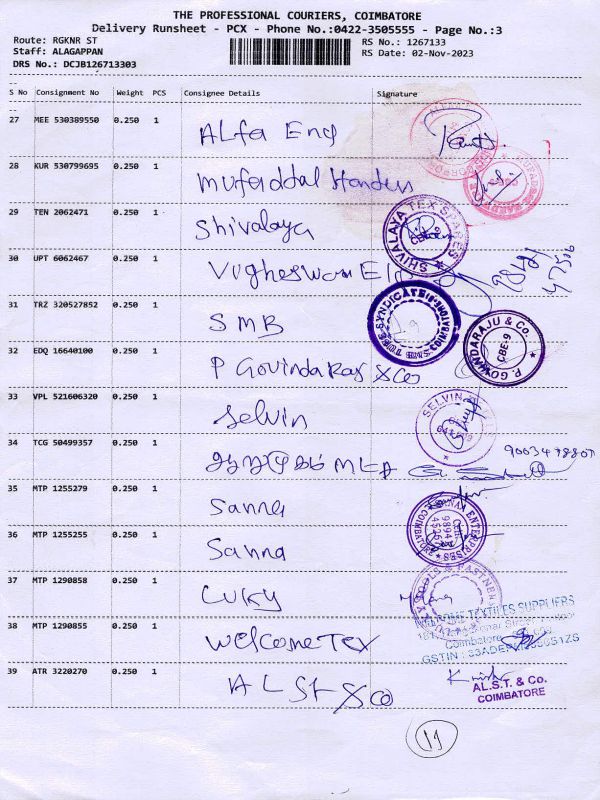 THE PROFESSIONAL COURIERS, COIMBATORE
Delivery Runsheet - PCX - Phone No.:0422-3505555 - Page No.:3
Route: RGKNR ST
RS No.: 1267133
Staff: ALAGAPPAN
RS Date: 02-Nov-2023
DRS No.: DCJB126713303
S No Consignment No Weight PCS Consignee Details Signature
27 MEE 530389550 0.250 1 ALfa Eng
28 KUR 530799695 0.250 1 Mufaddal
29 TEN 2062471 0.250 1 Shivalaya
SHIVALAYA TEX SPARES CBE-9
30 UPT 6062467 0.250 1
31 TRZ 320527852 0.250 1 SMB
32 EDQ 16640100 0.250 1 P Govindaraj & Co
P. GOVINDARAJU & CO. CBE-9
33 VPL 521606320 0.250 1 Selvin
SELVIN
34 TCG 50499357 0.250 1
35 MTP 1255279 0.250 1 Sanna
36 MTP 1255255 0.250 1 Sanna
ENTERPRISES COIMBATORE
37 MTP 1290858 0.250 1 Luky
TEXTILES SUPPLIERS
38 MTP 1290855 0.250 1 Welcome Tex
Coimbatore
GSTIN :
39 ATR 3220270 0.250 1 AL St & Co
AL.S.T. & Co.
COIMBATORE